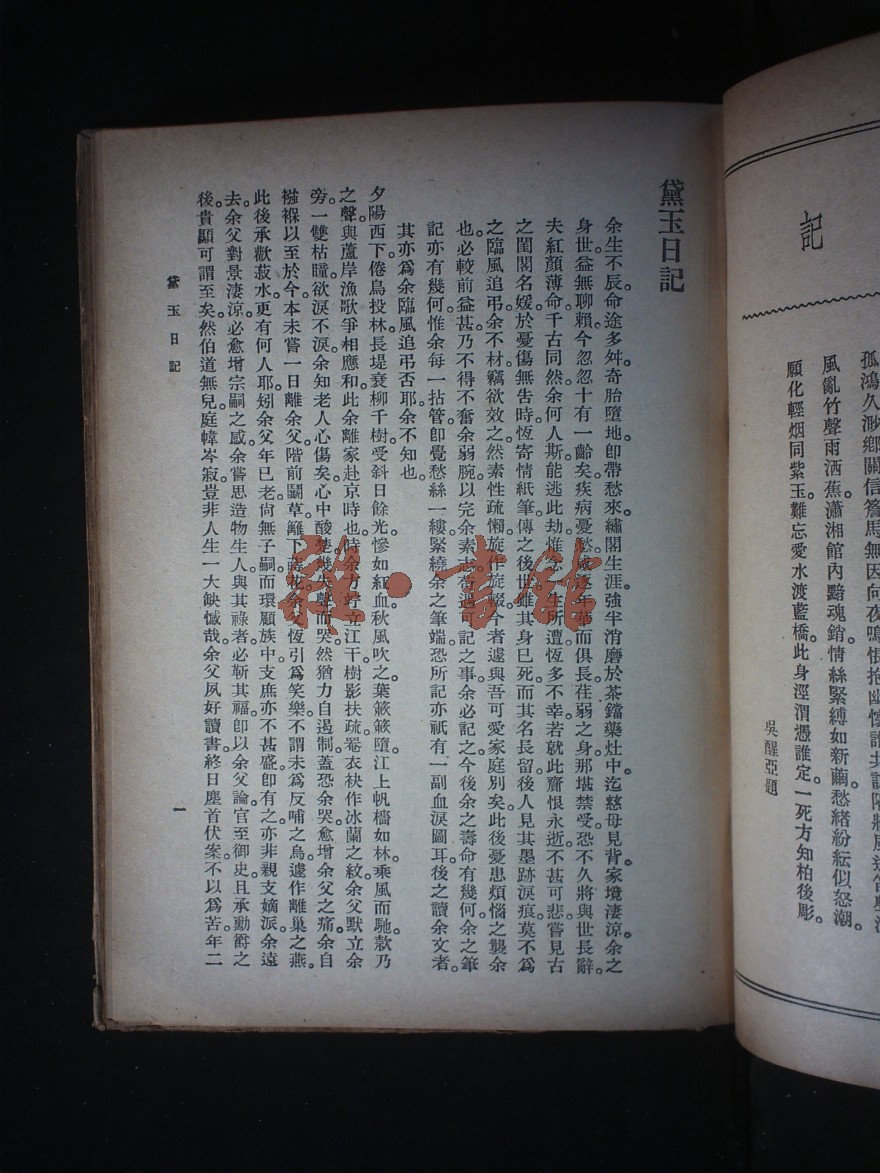 孤鴻久渺鄉關信簷馬無因向夜鳴悵抱幽懷誰共訴
風亂竹聲雨洒蕉。瀟湘館內黯魂銷。情絲緊縛如新繭。愁緒紛紜似怒潮。
願化輕烟同紫玉。難忘愛水渡藍橋。此身涇渭憑誰定。一死方知柏後彫。
吳醒亞題
記
黛玉日記
余生不辰。命途多舛。奇胎墮地。卽帶愁來。繡閣生涯。強半消磨於茶鐺藥灶中。迄慈母見背。家境淒涼。余之
身世益無聊賴。今忽忽十有一齡矣。疾病憂愁。咸逐年華而俱長。荏弱之身。那堪禁受。恐不久將與世長辭。
夫紅顏薄命。千古同然。余何人斯。能逃此劫。惟念生所遭。恆多不幸。若就此齎恨永逝。不甚可悲。嘗見古
之閨閣名媛。於憂傷無告時。恆寄情紙筆。傳之後世。雖其身已死。而其名長留。後人見其墨跡淚痕。莫不爲
之臨風追弔。余不材。竊欲效之。然素性疏懶。旋作旋輟。今者遽與吾可愛家庭別矣。此後憂患煩惱之襲余
也。必較前益甚。乃不得不奮余弱腕。以完余素志。苟遇可記之事。余必記之。今後余之壽命有幾何。余之筆
記亦有幾何。惟余每一拈管。卽覺愁絲一縷。緊繞余之筆端。恐所記亦祇有一副血淚圖耳。後之讀余文者。
其亦爲余臨風追弔否耶。余不知也。
夕陽西下。倦鳥投林。長堤衰柳千樹。受斜日餘光。慘如紅血。秋風吹之。葉簌簌墮。江上帆檣如林。乘風而馳。欵乃
之聲。與蘆岸漁歌。爭相應和。此余離家赴京時也。時余方竚立江干。樹影扶疏。罨衣袂作冰蘭之紋。余父默立余
旁。一雙枯瞳。欲淚不淚。余知老人心傷矣。心中酸楚。幾失聲而哭。然猶力自遏制。蓋恐余哭愈增余父之痛。余自
襁褓以至於今。本未嘗一日離余父。階前鬭草。籬下蒔花。余父恆引爲笑樂。不謂未爲反哺之烏。遽作離巢之燕。
此後承歡菽水。更有何人耶。矧余父年已老。尙無子嗣。而環顧族中。支庶亦不甚盛。卽有之。亦非親支嫡派。余遠
去。余父對景淒涼。必愈增宗嗣之感。余嘗思造物生人。與其祿者。必靳其福。卽以余父論。官至御史。且承勳爵之
後。貴顯可謂至矣。然伯道無兒。庭幃岑寂。豈非人生一大缺憾哉。余父夙好讀書。終日塵首伏案。不以爲苦。年二
黛玉日記
一
雜·書館